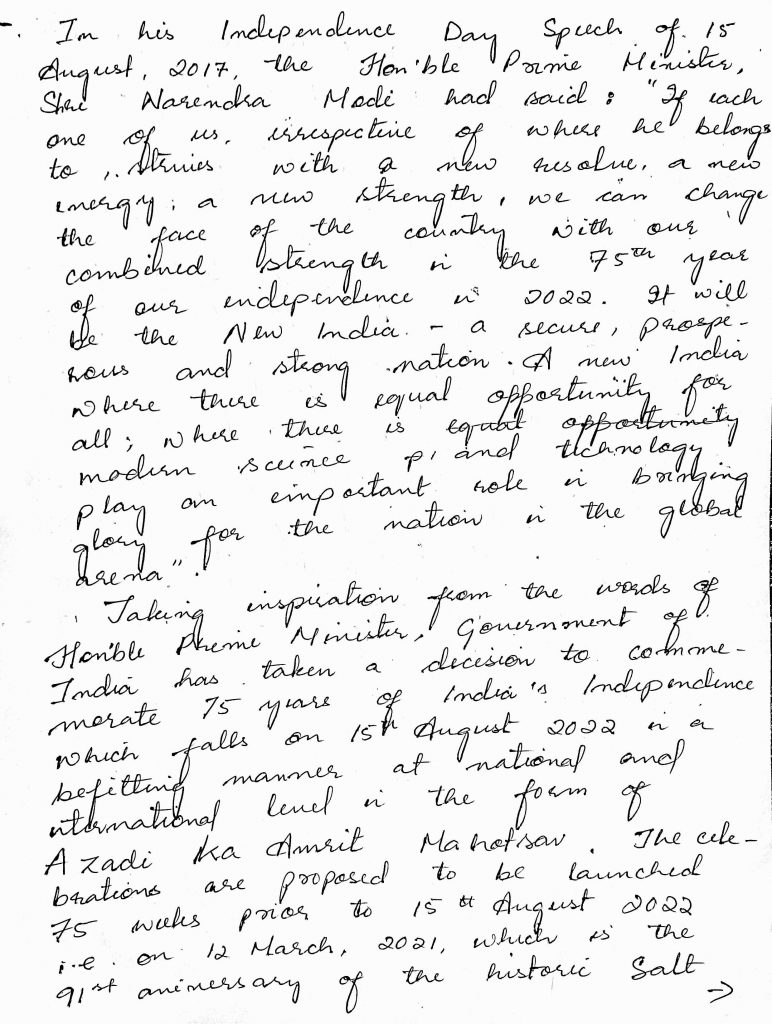 In his Independence Day Speech of 15
August, 2017, the Hon'ble Prime Minister,
Shri Narendra Modi had said : "If each
one of us, irrespective of where he belongs
to, strives with a new resolve, a new
energy, a new strength, we can change
the face of the country with our
combined strength in the 75th year
of our independence in 2022. It will
be the New India - a secure, prospe-
rous and strong nation. A new India
where there is equal opportunity for
all; where there is equal opportunity
modern science p, and technology
play an important role in bringing
glory for the nation in the global
arena".
Taking inspiration from the words of
Hon'ble Prime Minister, Government of
India has taken a decision to comme-
morate 75 years of India's Independence
which falls on 15th August 2022 in a
befitting manner at national and
international level in the form of
Azadi Ka Amrit Mahotsav. The cele-
brations are proposed to be launched
75 weeks prior to 15th August 2022
i.e. on 12 March, 2021, which is the
91st aniversary of the historic Salt
→